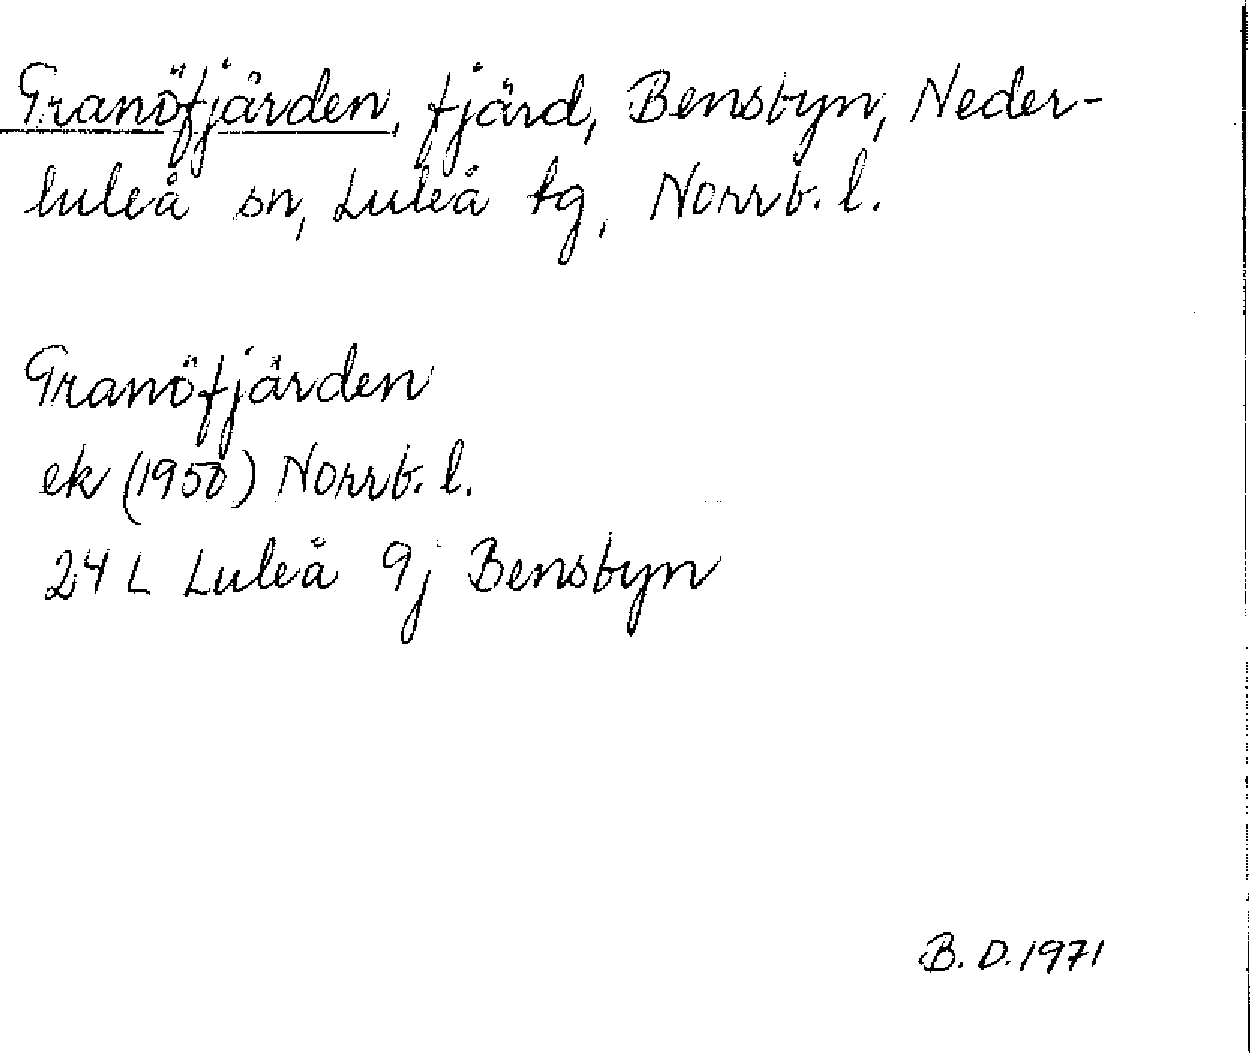 Granöfjärden, fjärd, Bensbyn, Neder-
luleå sn, Luleå tg, Norrb. l.
Granöfjärden
ek (1950) Norrb. l.
24 L Luleå 9j Bensbyn
B. D. 1971